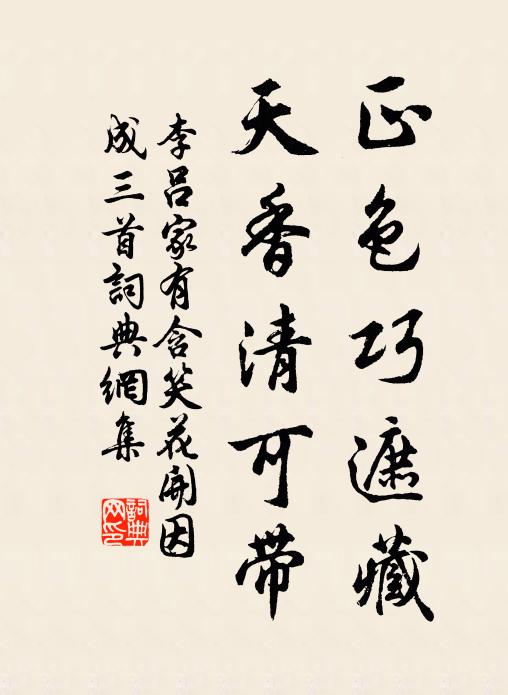 正色巧遮藏
天香清可带
李吕家有含笑花開因
成三首詞典網集
詞典
网印